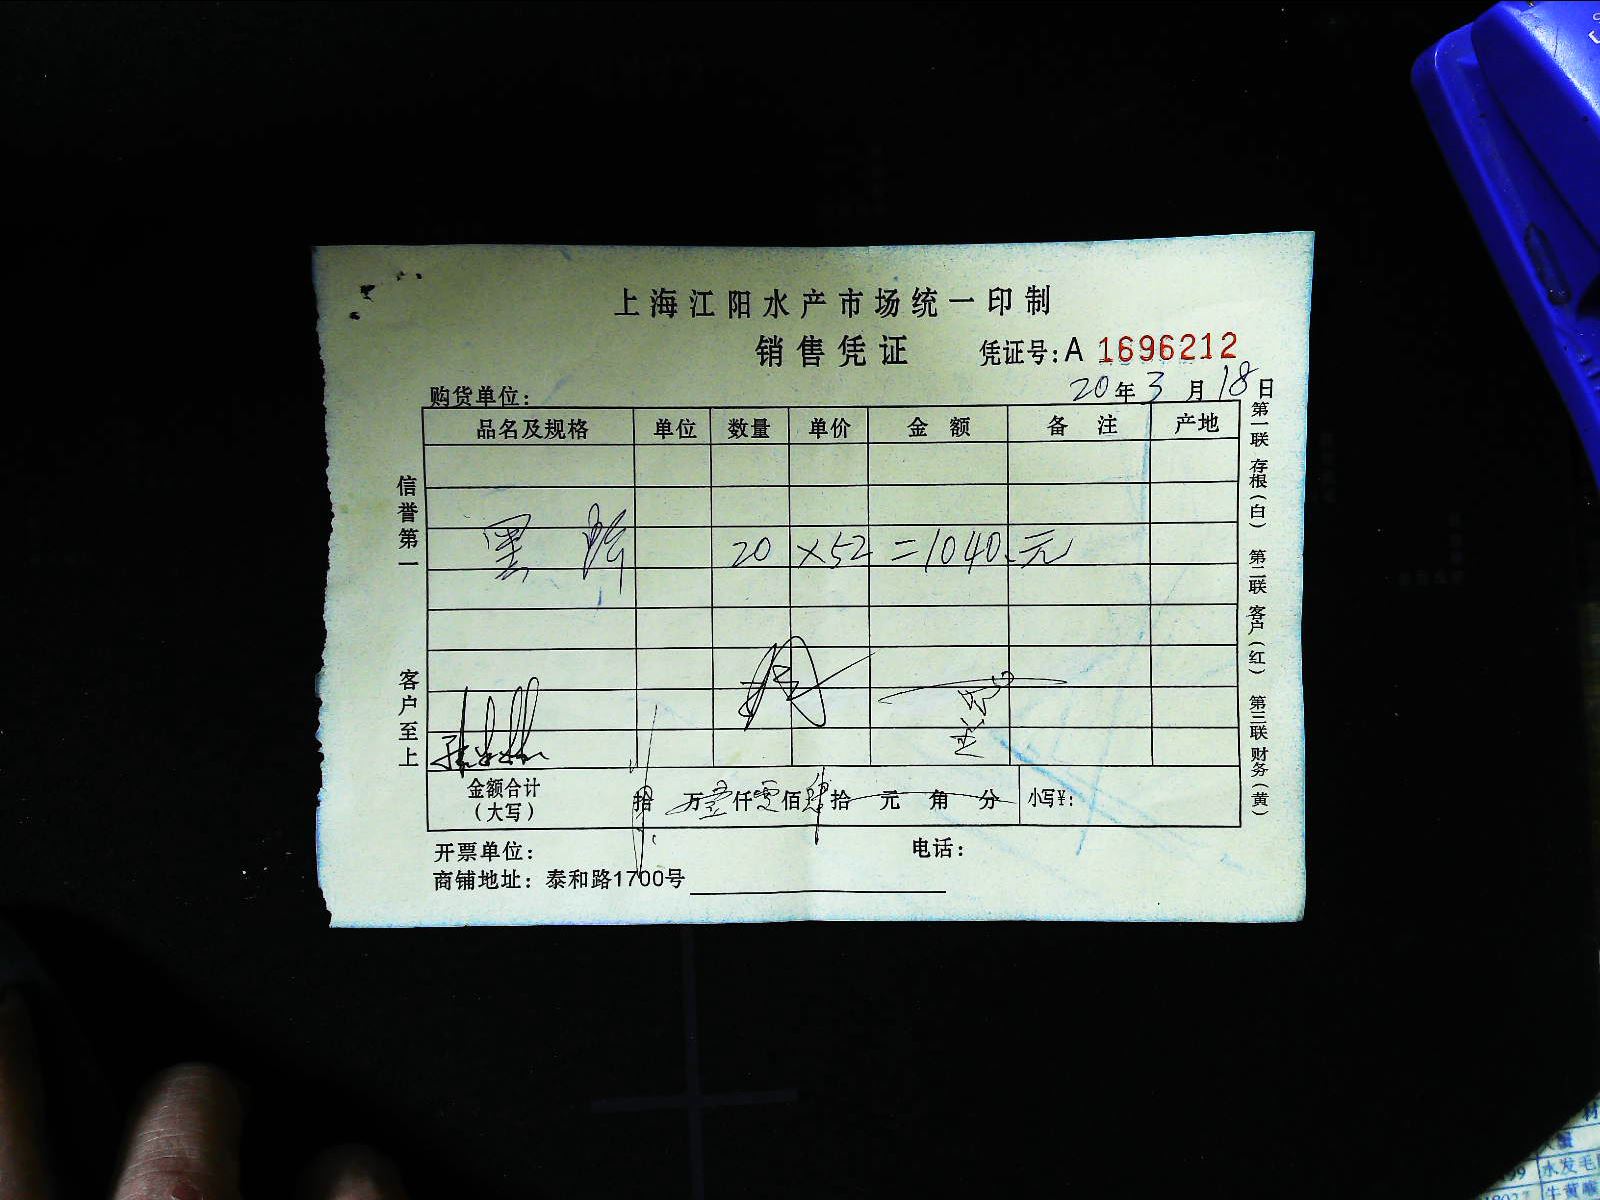 上海江阳水产市场统一印制
销售凭证 凭证号:A 1696212
购货单位: 20年3月18日
品名及规格 单位 数量 单价 金额 备注 产地
黑 20 ×52 =1040.元
金额合计(大写) 拾 万壹仟零佰肆拾 元 角 分 小写¥:
开票单位: 电话:
商铺地址: 泰和路1700号
信誉第一 客户至上
第一联 存根(白) 第二联 客户(红) 第三联 财务(黄)
水发毛